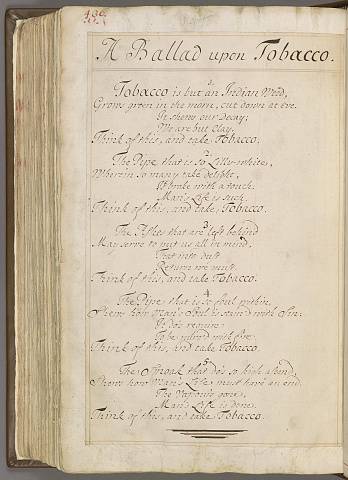 A Ballad upon Tobacco.
Tobacco is but an Indian Weed,
Grows green in the morn, cut down at eve.
It shews our decay;
We are but clay.
Think of this, and take Tobacco.
2
The Pipe that is so Lilly-white,
Wherein so many take delight,
Is broke with a touch:
Man's Life is such.
Think of this, and take Tobacco.
3
The Ashes that are left behind
May serve to put us all in mind,
That into dust
Return we must.
Think of this, and take Tobacco.
4
The Pipe that is so foul within,
Shews how Man's Soul is stain'd with Sin:
It do's require
To be purg'd with fire.
Think of this, and take Tobacco.
5
The Smoak that do's so high ascend,
Shews how Man's Life must have an end.
The Vapour's gone,
Man's Life is done.
Think of this, and take Tobacco.